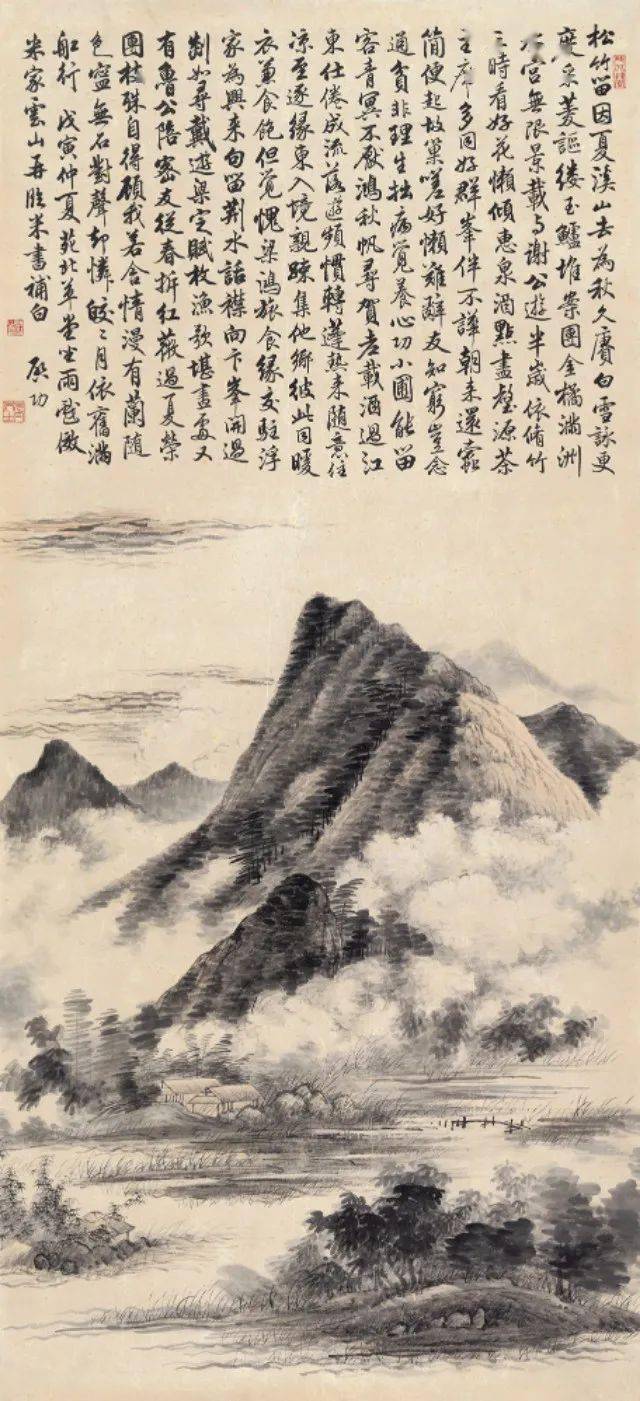 松竹留因夏溪山去為秋久賡白雪詠更
度采菱謳縷玉鱸堆案團金橘滿洲
水宮無限景載与謝公遊半歲依脩竹
三時看好花懶傾惠泉酒點盡壑源茶
主席多同好群峯伴不譁朝来還蠹
簡便起故巢嗟好懶難辭友知窮豈念
通貧非理生拙病覺養心功小圃能留
客青冥不厭鴻秋帆尋賀老載酒過江
東仕倦成流落遊頻慣轉蓬熱来随意住
涼至逐緣東入境親疎集他鄉彼此同暖
衣兼食飽但覺愧梁鴻旅食緣交駐浮
家為興来句留荆水話襟向卞峯開過
剡如尋戴遊梁定賦枚漁歌堪畫處又
有魯公陪密友從春拆紅薇過夏榮
團枝殊自得顧我若含情漫有蘭随
色寧無石對聲却憐皎〻月依舊滿
船行 戊寅仲夏苑北草堂坐雨戲倣
米家雲山再臨米書補白 啟功